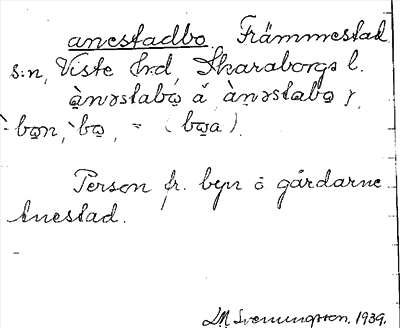 anestadbo Främmestad
s:n, Viste hrd, Skaraborgs l.
ànəstabo̤ å àṇəstabo̤ r,
-bo̤n, -bo̤, = (bo̤a).
Person fr. byn o gårdarne
Anestad.
LM Svenungsson, 1939.